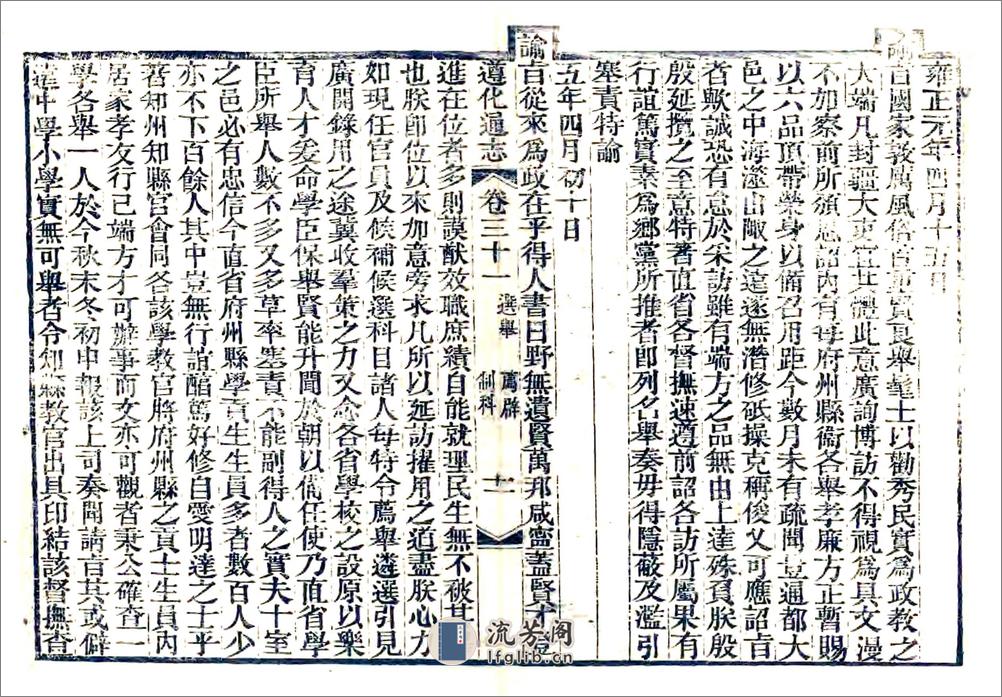 雍正元年四月十五日
諭旨國家敦厲風俗首重賢良舉髦士以勸秀民實為政教之
大端凡封疆大吏宜共體此意廣詢博訪不得視為具文漫
不加察前所頒恩詔內有每府州縣衛各舉孝廉方正暫賜
以六品頂帶榮身以備召用距今數月未有疏聞豈通都大
邑之中海澨山陬之遠遂無潛修砥操克稱俊乂可應詔旨
者歟誠恐有怠於采訪雖有端方之品無由上達殊負朕殷
殷延攬之至意特著直省各督撫速遵前詔各訪所屬果有
行誼篤實素為鄉黨所推者即列名舉奏毋得隱蔽及濫引
塞責特諭
五年四月初十日
諭旨從來為政在乎得人書曰野無遺賢萬邦咸寧蓋賢才登
遵化通志 卷三十一 選舉 薦辟 制科 十一
進在位者多則謨猷效職庶績自能就理民生無不被其
也朕即位以來加意旁求凡所以延訪擢用之道盡朕心力
如現任官員及候補候選科目諸人每特令薦舉遴選引見
廣開錄用之途冀收羣策之力又念各省學校之設原以樂
育人才爰命學臣保舉賢能升聞於朝以備任使乃直省學
臣所舉人數不多又多草率塞責不能副得人之實夫十室
之邑必有忠信今直省府州縣學貢生生員多者數百人少
亦不下百餘人其中豈無行誼醇篤好修自愛明達之士乎
著知州知縣官會同各該學教官將府州縣之貢士生員內
居家孝友行已端方才可辦事而文亦可觀者秉公確查一
學各舉一人於今秋末冬初申報該上司奏聞請旨其或僻
遠中學小學實無可舉者令知縣教官出具印結該督撫查
流芳阁
lfglib.cn